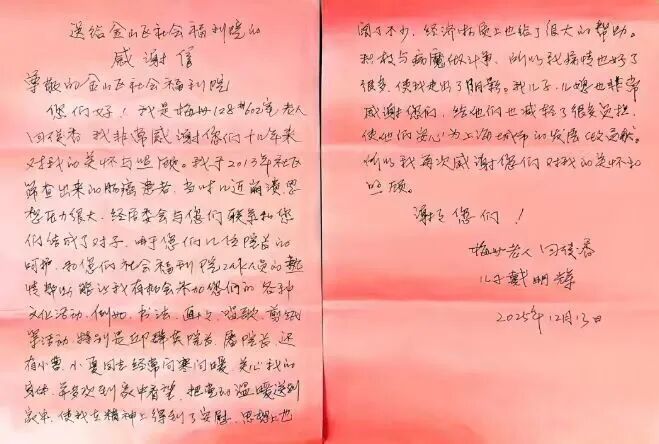 送给金山区社会福利院的
感谢信
尊敬的金山区社会福利院
您们好！我是梅州128#602室老人
闫俊香我非常感谢您们十几年来
对我的关怀与照顾。我于2013年社区
筛查出来的肠癌患者，当时几近崩溃思
想压力很大，经居委会与您们联系和您
们结成了对子，由于您们几位院长的
呵护，和您们社会福利院工作人员的热
情帮助能让我有机会参加您们的各种
文化活动，例如，书法、画画、唱歌、剪纸
等活动。特别是丘群英院长、潘院长，还
有小曹、小夏同志经常问寒问暖，关心我的
身体，并多次到家中看望，把党的温暖送到
家中，使我在精神上得到了安慰，思想上也
阔了不少，经济物质上也给了很大的帮助。
积极与病魔做斗争，所以我病情也好了
很多，使我走出了阴影。我儿子、儿媳也非常
感谢您们，给他们也减轻了很多负担，
使他们安心为上海城市的发展做贡献。
所以我再次感谢您们对我的关怀和
照顾。
谢谢您们！
梅州老人闫俊香
儿子戴明辉
2025年12月13日